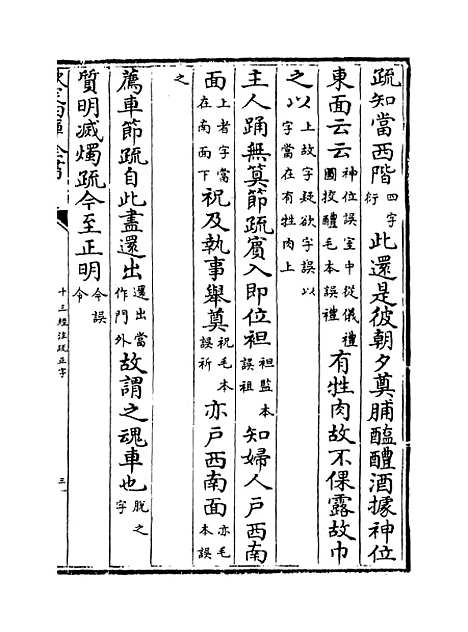 疏知當西階四字衍此還是彼朝夕奠脯醢醴酒據神位
東面云云神位誤室中從儀禮圖挍醴毛本誤禮有牲肉故不倮露故巾
之以上故字疑欲字誤以八字當在有牲肉上
主人踊無筭節疏賔入即位袒袒監本誤祖知婦人戸西南
面上者字當在南面下祝及執事舉奠祝毛本誤祈亦戸西南面亦毛本誤
之
薦車節疏自此盡還出還出當作門外故謂之魂車也脱之字
質明滅燭疏今至正明今誤令
十三經注疏正字